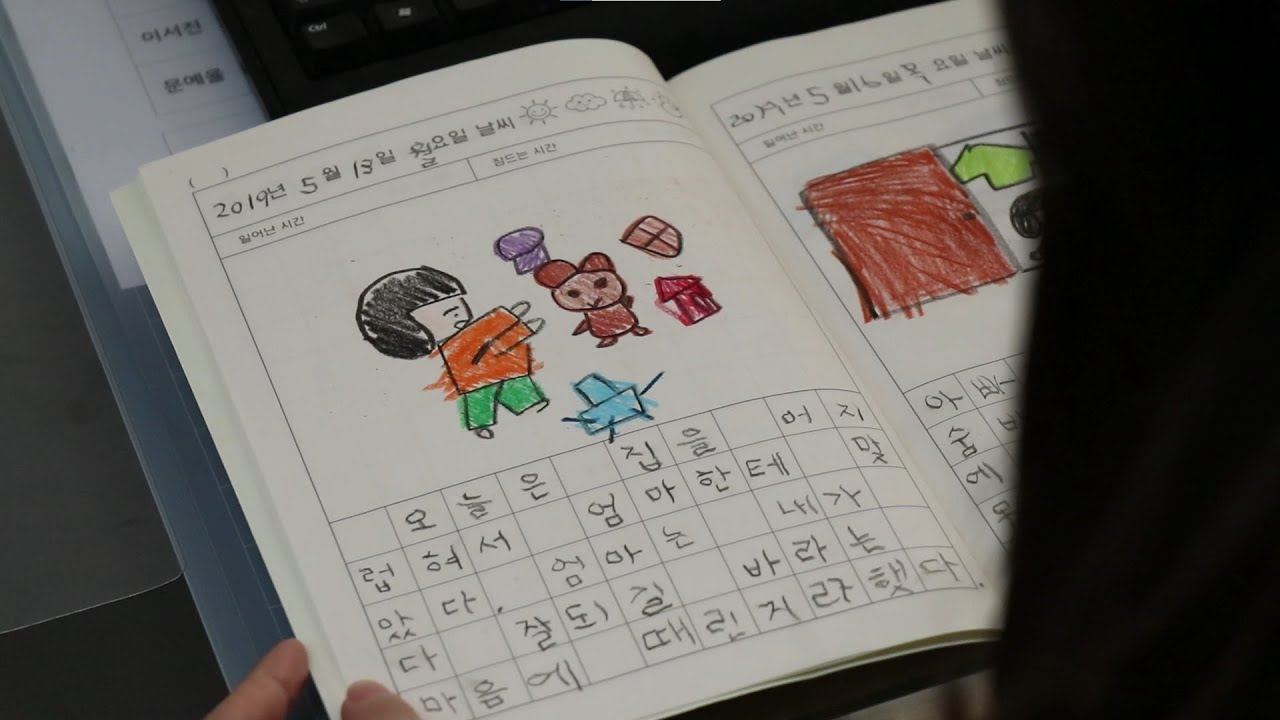 Ctrl
문예율
2019년 5월 13일 월요일 날씨
일어난 시간 잠드는 시간
오늘은 집을 어지
럽혀서 엄마한테 맞
았다. 엄마는 내가
다 잘되길 바라는
마음에 때린거라했다.
2019년 5월 16일 목요일 날씨
일어난 시간
아
에